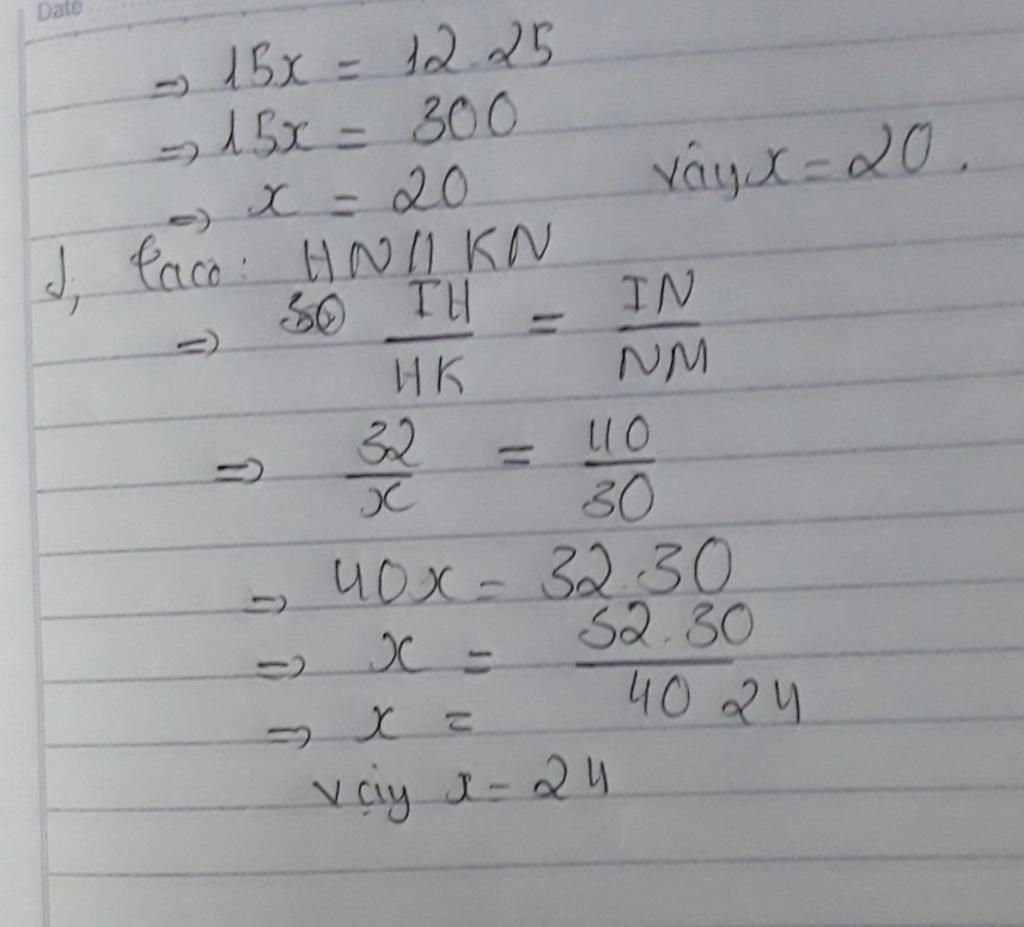 Date
=> 15x = 12.25
=> 15x = 300
=> x = 20 vâyx = 20.
d, Taco: HN // KN
=> 30 IH/HK = IN/NM
=> 32/x = 40/30
=> 40x = 32.30
=> x = 32.30/40
=> x = 24
vậy x = 24